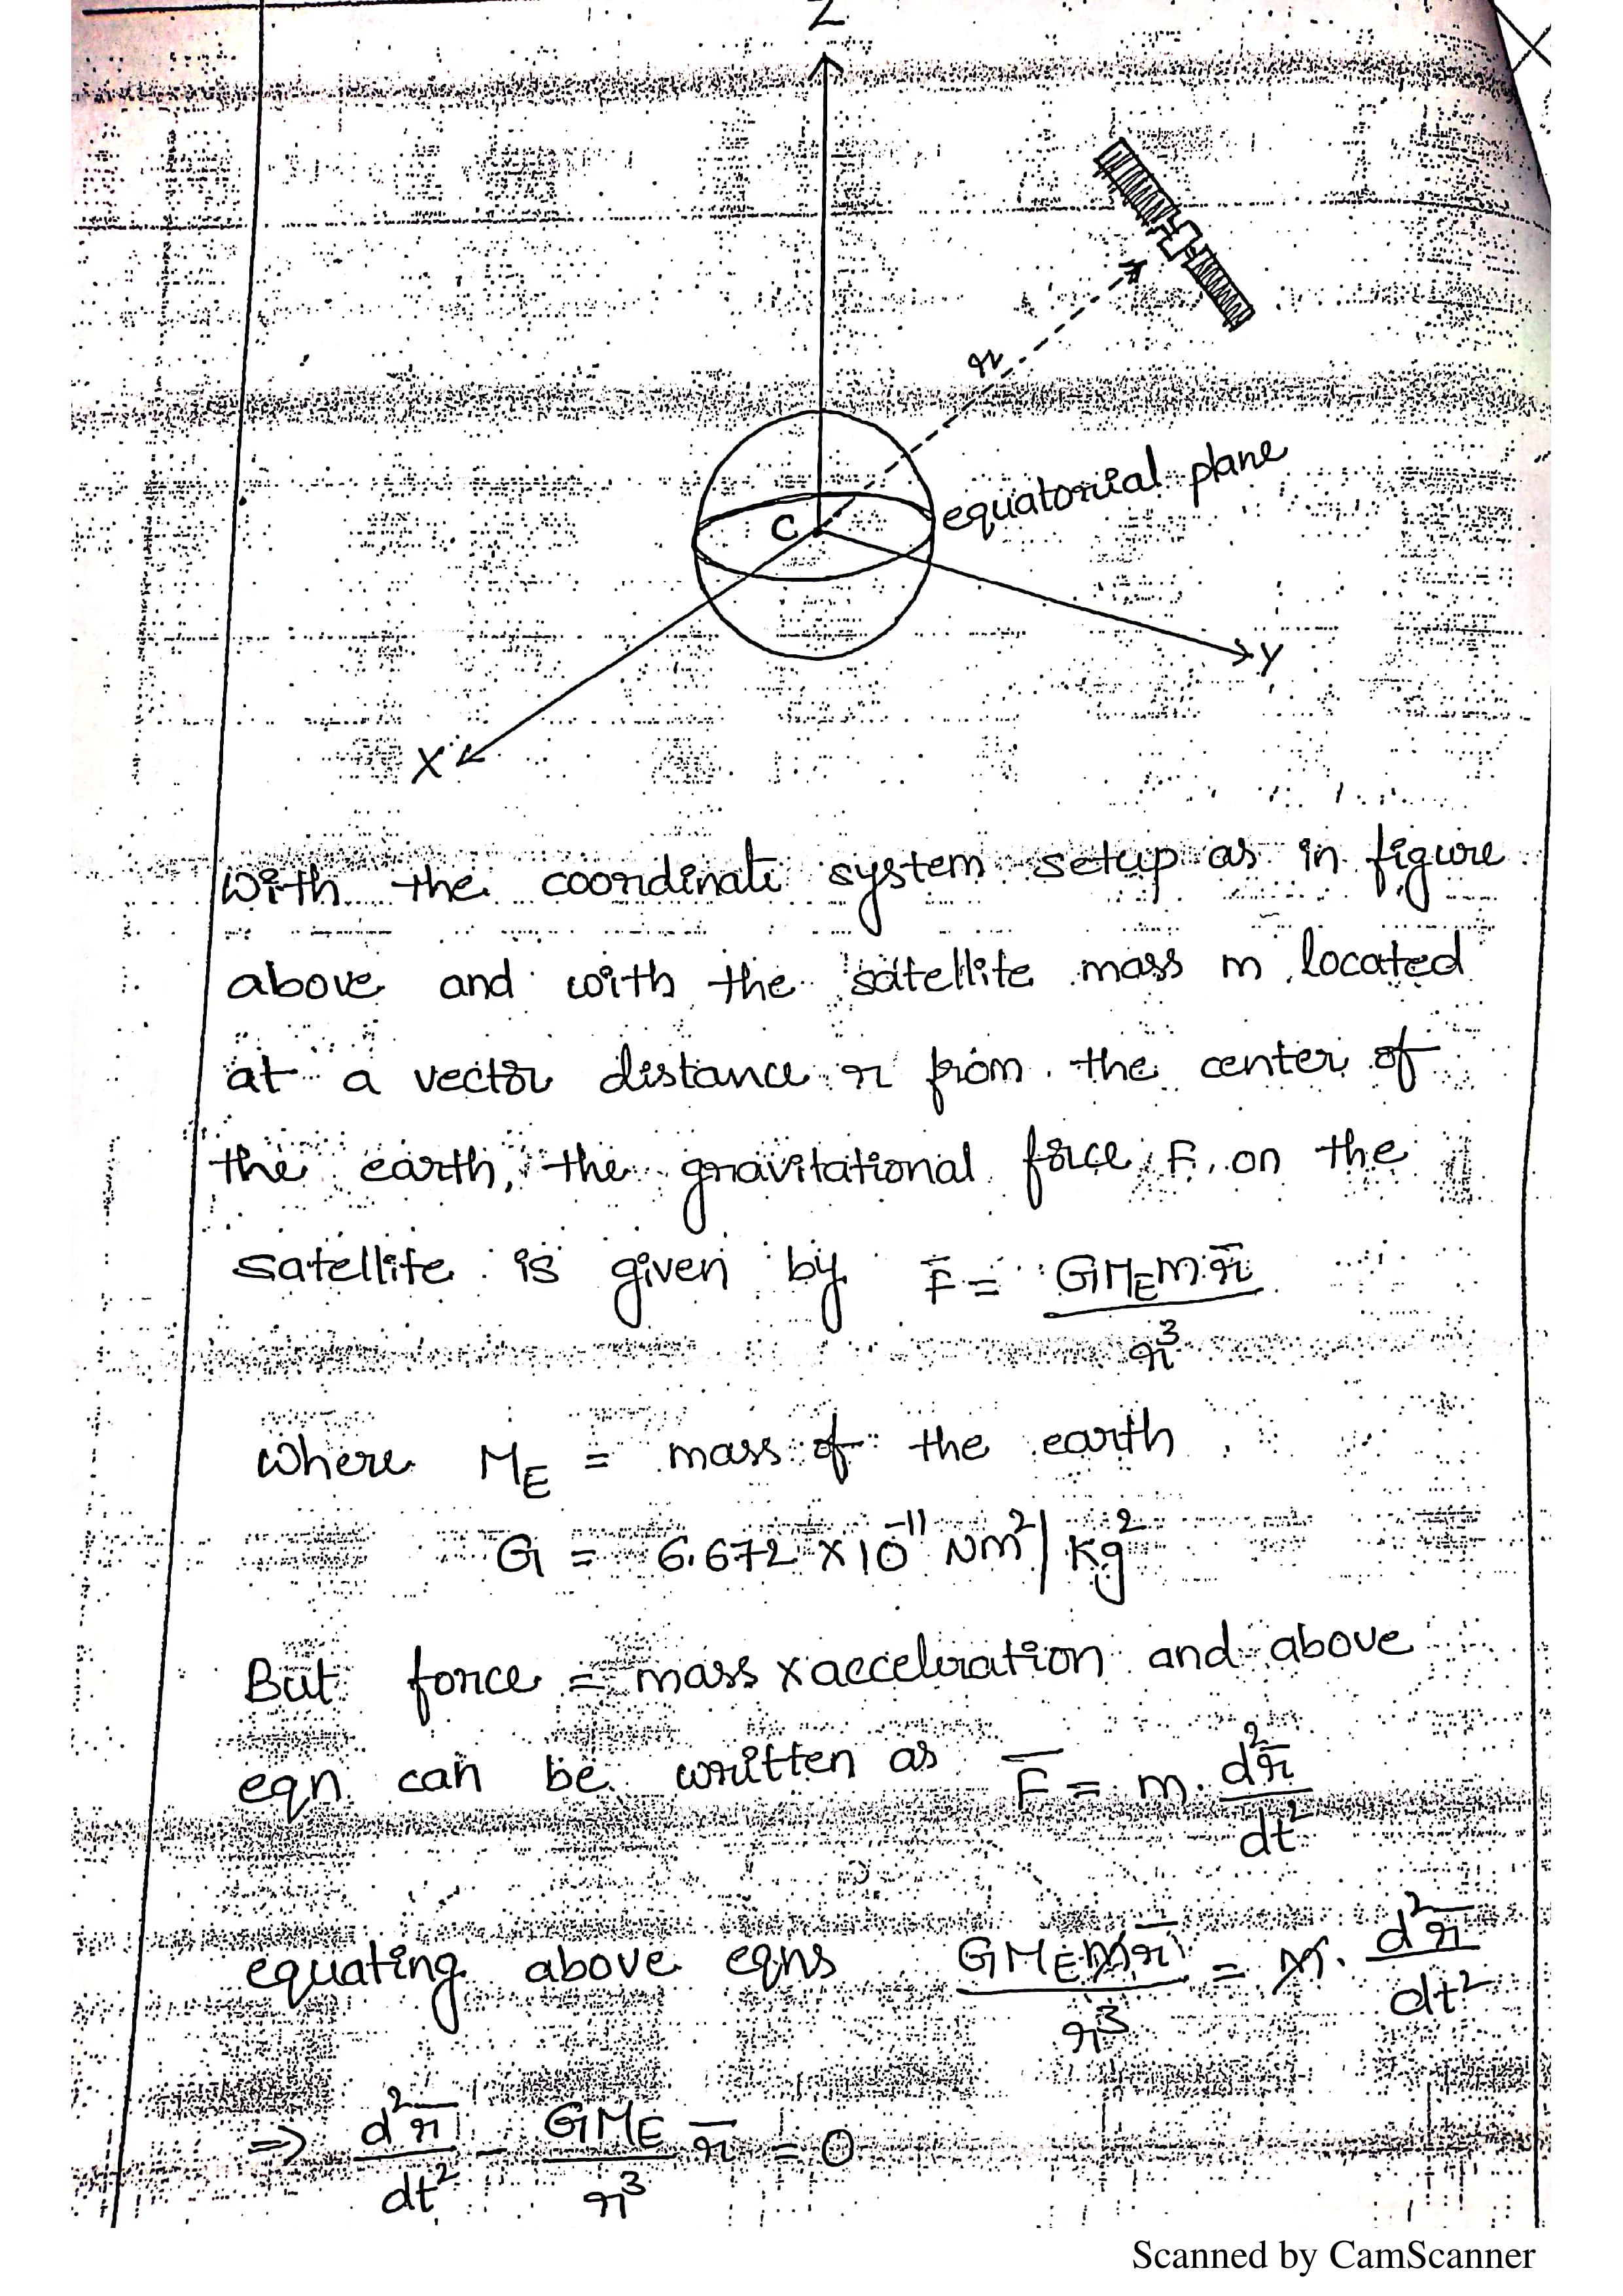 Z
r
equatorial plane
C
Y
X
with the coordinate system setup as in figure
above and with the satellite mass m located
at a vector distance r from the center of
the earth, the gravitational force, F, on the
satellite is given by F̄ = GM_E m r̄ / r³
where M_E = mass of the earth
G = 6.672 × 10⁻¹¹ Nm²/kg²
But force = mass x acceleration and above
eqn can be written as F̄ = m. d²r̄/dt²
equating above eqns GM_E m r̄ / r³ = m. d²r̄/dt²
⇒ d²r̄/dt² - GM_E/r³ r̄ = 0
Scanned by CamScanner